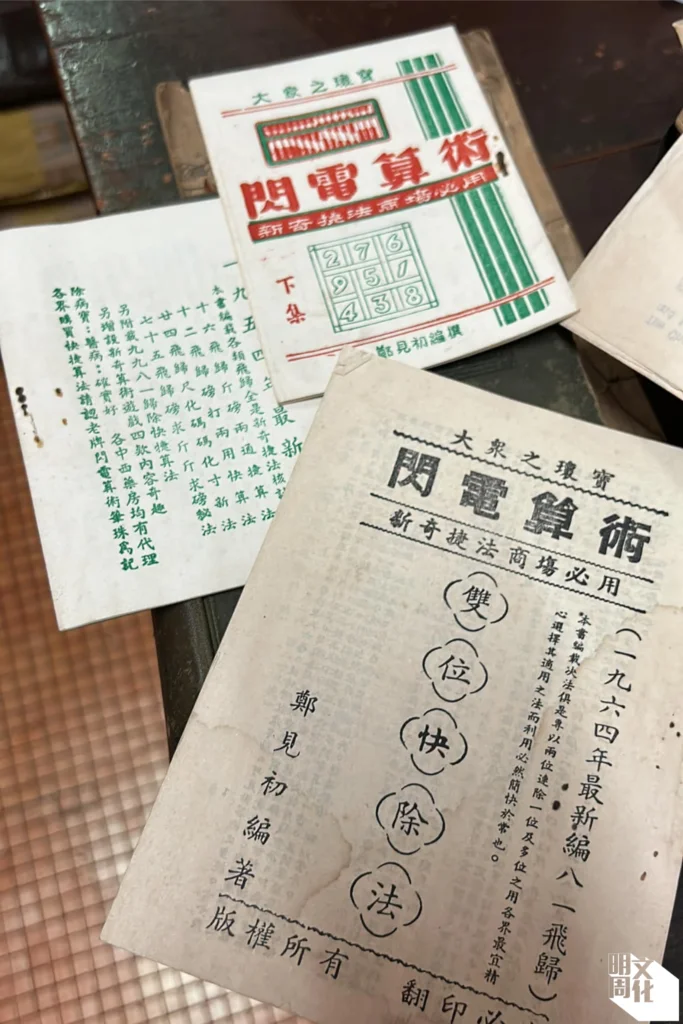 大衆之瓊寶
閃電算術
新奇捷法商場必用
2 7 6
9 5 1
4 3 8
下集
鄭見初編撰
一九五四年最新
本書編載各類飛歸全是新奇捷法
十六飛歸斤磅兩通捷算法
十二飛歸磅打兩用快算法
廿四飛歸尺化碼碼化寸新法
七十五飛歸磅求斤斤求磅秘法
另附載九九八一歸除快捷算法
另增設新奇算術遊戲四款內容奇趣
除病寶:醫病:確實好 各中西藥房均有代理
各界購買快捷算法請認老牌閃電算術筆珠為記
大衆之瓊寶
閃電算術
新奇捷法商塲必用
(一九六四年最新編八一飛歸)
本書編載決法俱是專以兩位連除一位及多位之用各界最宜精
心選擇其適用之法而利用必然簡快於常也。
雙位快除法
鄭見初編著
版權所有 翻印必
明周文化